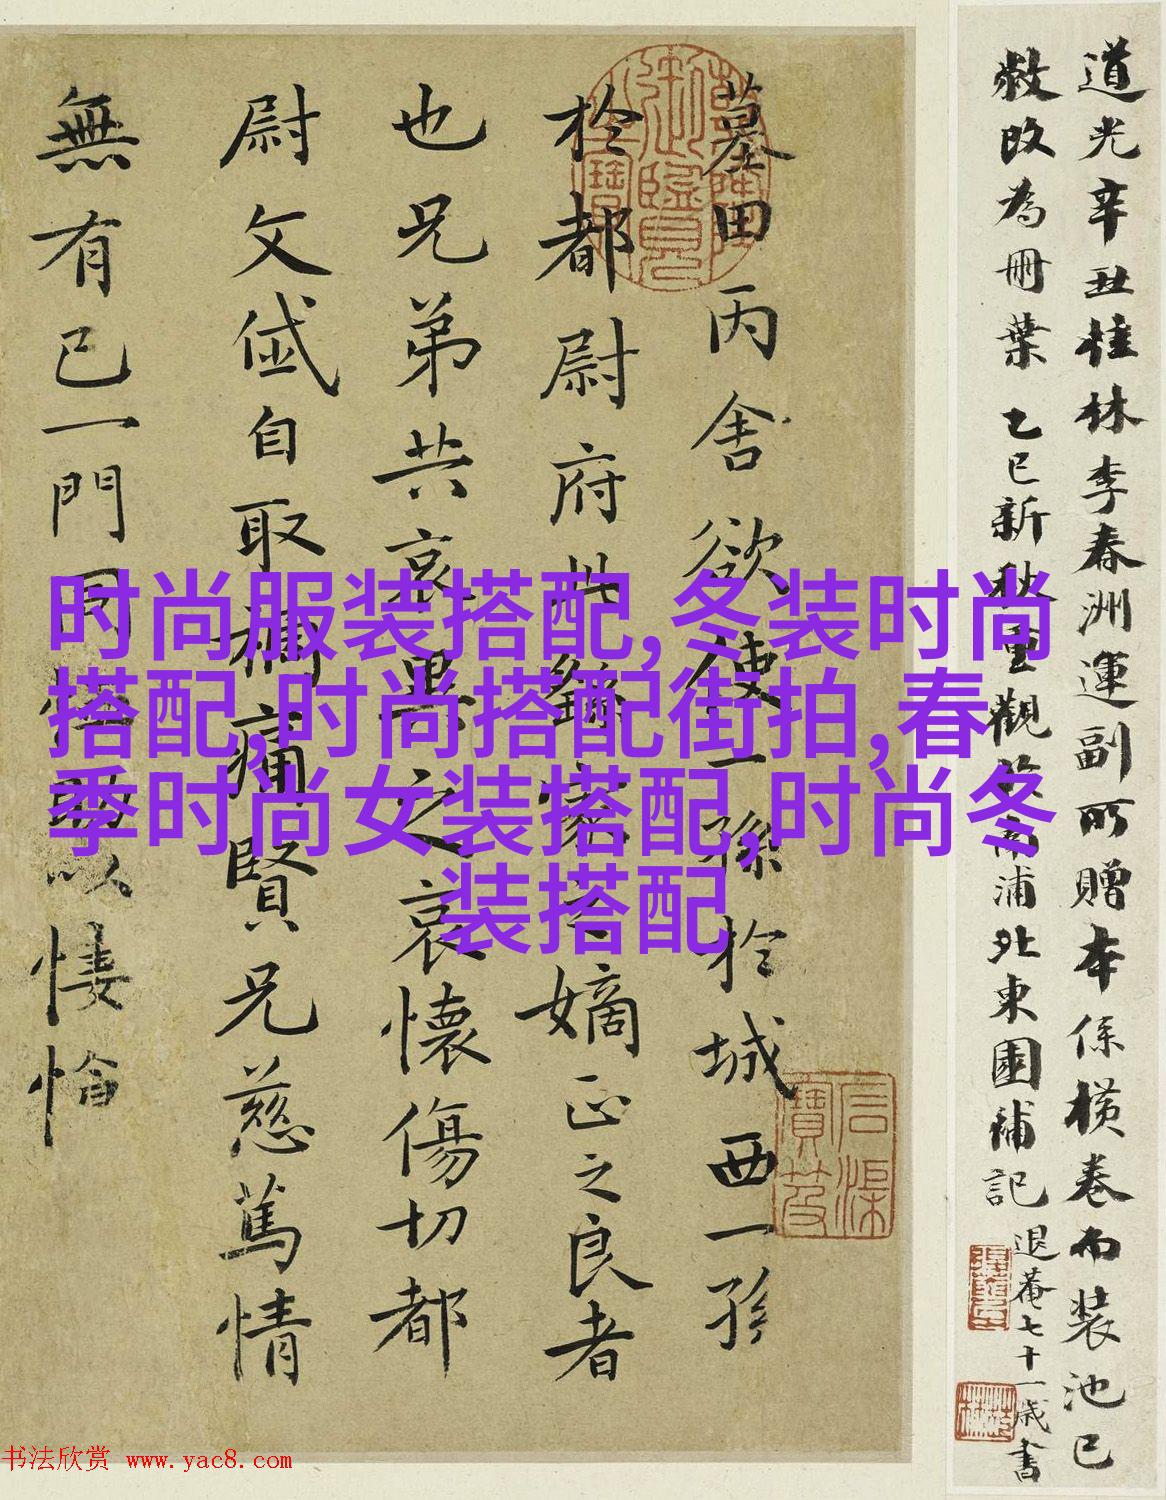 道光辛丑桂林李春洲運副所贈本係橫卷而裝池已
敝改為冊葉乙巳新秋重觀於南浦北東園補記
退菴七十一歲書
墓田丙舍欲使一孫於城西一孫
於都尉府此繇家之嫡正之良者
也兄弟共哀異之哀懷傷切都
尉文岱自取禍痛賢兄慈篤情
無有已一門同恤助以悽愴
时尚服装搭配,冬装时尚
搭配,时尚搭配街拍,春
季时尚女装搭配,时尚冬
装搭配
书法欣赏 www.yac8.com